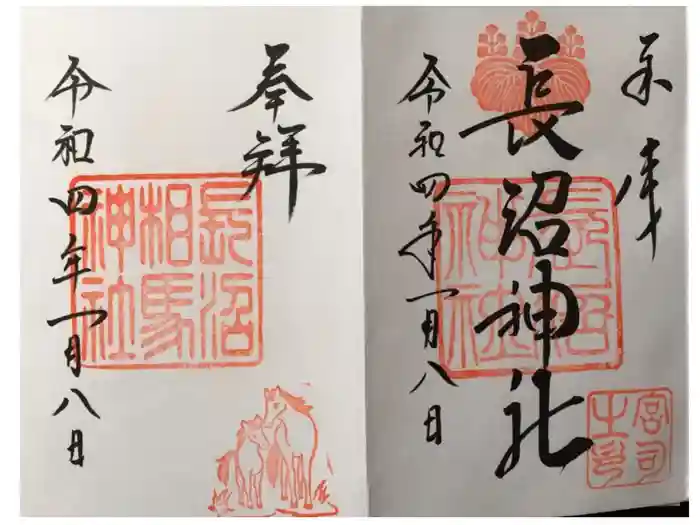 奉拝
長沼
相馬
神社
令和四年一月八日
長沼神社
長沼
神社
宮司
之印
令和四年一月八日